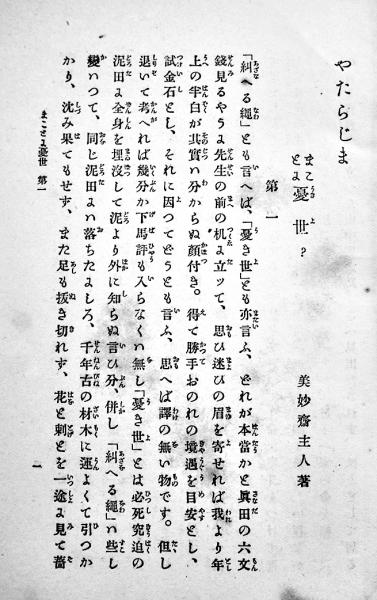 やたらじま
まことに憂世?
美妙齋主人著
第一
「糾へる繩」とも言へば、「憂き世」とも亦言ふ、どれが本當かと眞田の六文
錢見るやうな先生の前の机に立ッて、思ひ迷ひの眉を寄せれば我より年
上の半白が其實ハ分からぬ顏付き。得て勝手おのれの境遇を目安とし、
試金石とし、それに因つてどうとも言ふ、思へば譯の無い物です。但し
退いて考へれば幾分か下馬評も入らなくハ無し「憂き世」とは必死究迫の
泥田に全身を埋沒して泥より外に知らぬ言ひ分、併し「糾へる繩」ハ些し
變ハつて、同じ泥田にハ落ちたにしろ、千年古の材木に運よくて引つか
かり、沈み果てもせず、また足も拔き切れず、花と刺とを一途に見て薔
まことに憂世 第一
一